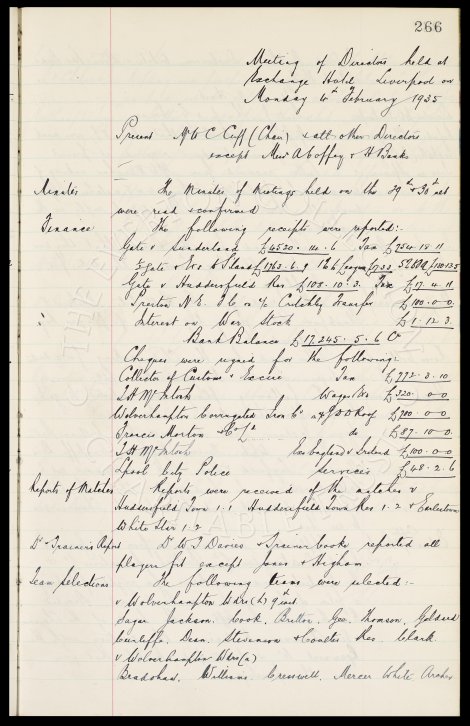 266
Meeting of Directors held at
Exchange Hotel Liverpool on
Monday 4th February 1935
Present Mr W C Cuff (Chair) & all other Directors
except Messrs A Coffey & H Banks
Minutes The Minutes of Meetings held on the 29th & 30th ult
were read & confirmed
Finance The following receipts were reported:-
Gate v Sunderland £4520.14.6 Tax £754.18.11
½ Gate & Exs @ S'land £1763.6.9
Gate v Huddersfield Res £103.10.3. Tax £17.4.11
Preston N.E. F.C. on a/c Critchley Transfer £100.0.0
Interest on War Stock £1.12.3
Bank Balance £17,245.5.6 Cr
Cheques were signed for the following:-
Collector of Customs & Excise Tax £772.3.10
T H McIntosh Wages &c £320.0.0
Wolverhampton Corrugated Iron Co a/c Roof £700.0.0
Francis Morton & Co Ld do £87.10.0
T H McIntosh Exs England v Ireland £100.0.0
Lpool City Police Services £48.2.6
Reports of Matches Reports were received of the matches v
Huddersfield Town 1.1 Huddersfield Town Res 1.2 & Earlestown
White Star 1.2
Dr & Trainers Report Dr W J Davies & Trainer Cooke reported all
players fit except Jones & Higham
Team Selections The following teams were selected:-
v Wolverhampton Wdrs (h) 9th inst.
Sagar Jackson. Cook, Britton, Gee. Thomson, Geldard
Cunliffe, Dean, Stevenson & Coulter Res. Clark
v Wolverhampton Wdrs (a)
Bradshaw, Williams Cresswell, Mercer White Archer